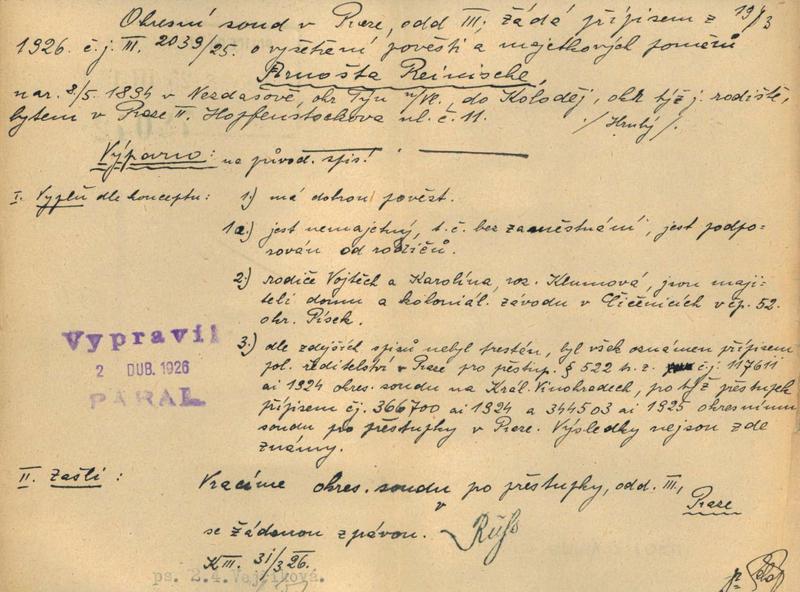 Okresní soud v Praze, odd III, žádá přípisem z 19/3
1926. č.j. III. 2039/25. o vyšetření pověsti a majetkových poměrů
Arnošta Reinische,
nar. 8/5. 1894 v Nezdašově, okr Týn n/Vl., do Koloděj, okr týž j. rodiště,
bytem v Praze II. Hopfenstockova ul. č. 11. /Hrubý/.
Výpravno: na původ. spis!
I. Vyplň dle konceptu: 1.) má dobrou pověst.
1a.) jest nemajetný, t.č. bez zaměstnání, jest podpo-
rován od rodičů.
2.) rodiče Vojtěch a Karolína, roz. Klumová, jsou maji-
teli domu a koloniál. závodu v Čičenicích v čp. 52.
okr. Písek.
3.) dle zdejších spisů nebyl trestán, byl však oznámen přípisem
pol. ředitelství v Praze pro přestup. § 522 tr. z. čj. 117611
ai 1924 okres. soudu na Král. Vinohradech, pro týž přestupek
přípisem čj. 366700 ai 1924 a 344503 ai 1925 okresnímu
soudu pro přestupky v Praze. Výsledky nejsou zde
známy.
Vypravil
2 DUB. 1926
PARAL
II. Zašli: Vracíme okres. soudu pro přestupky, odd. III,
v Praze
se žádanou zprávou.
K III. 31/3 26.
ps. 2.4. Vajtíková.